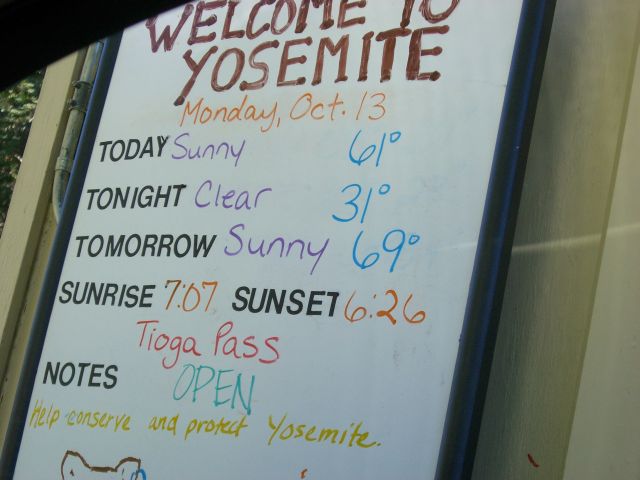 WELCOME TO
YOSEMITE
Monday, Oct. 13
TODAY Sunny 61°
TONIGHT Clear 31°
TOMORROW Sunny 69°
SUNRISE 7:07 SUNSET 6:26
Tioga Pass
NOTES OPEN
Help conserve and protect Yosemite.